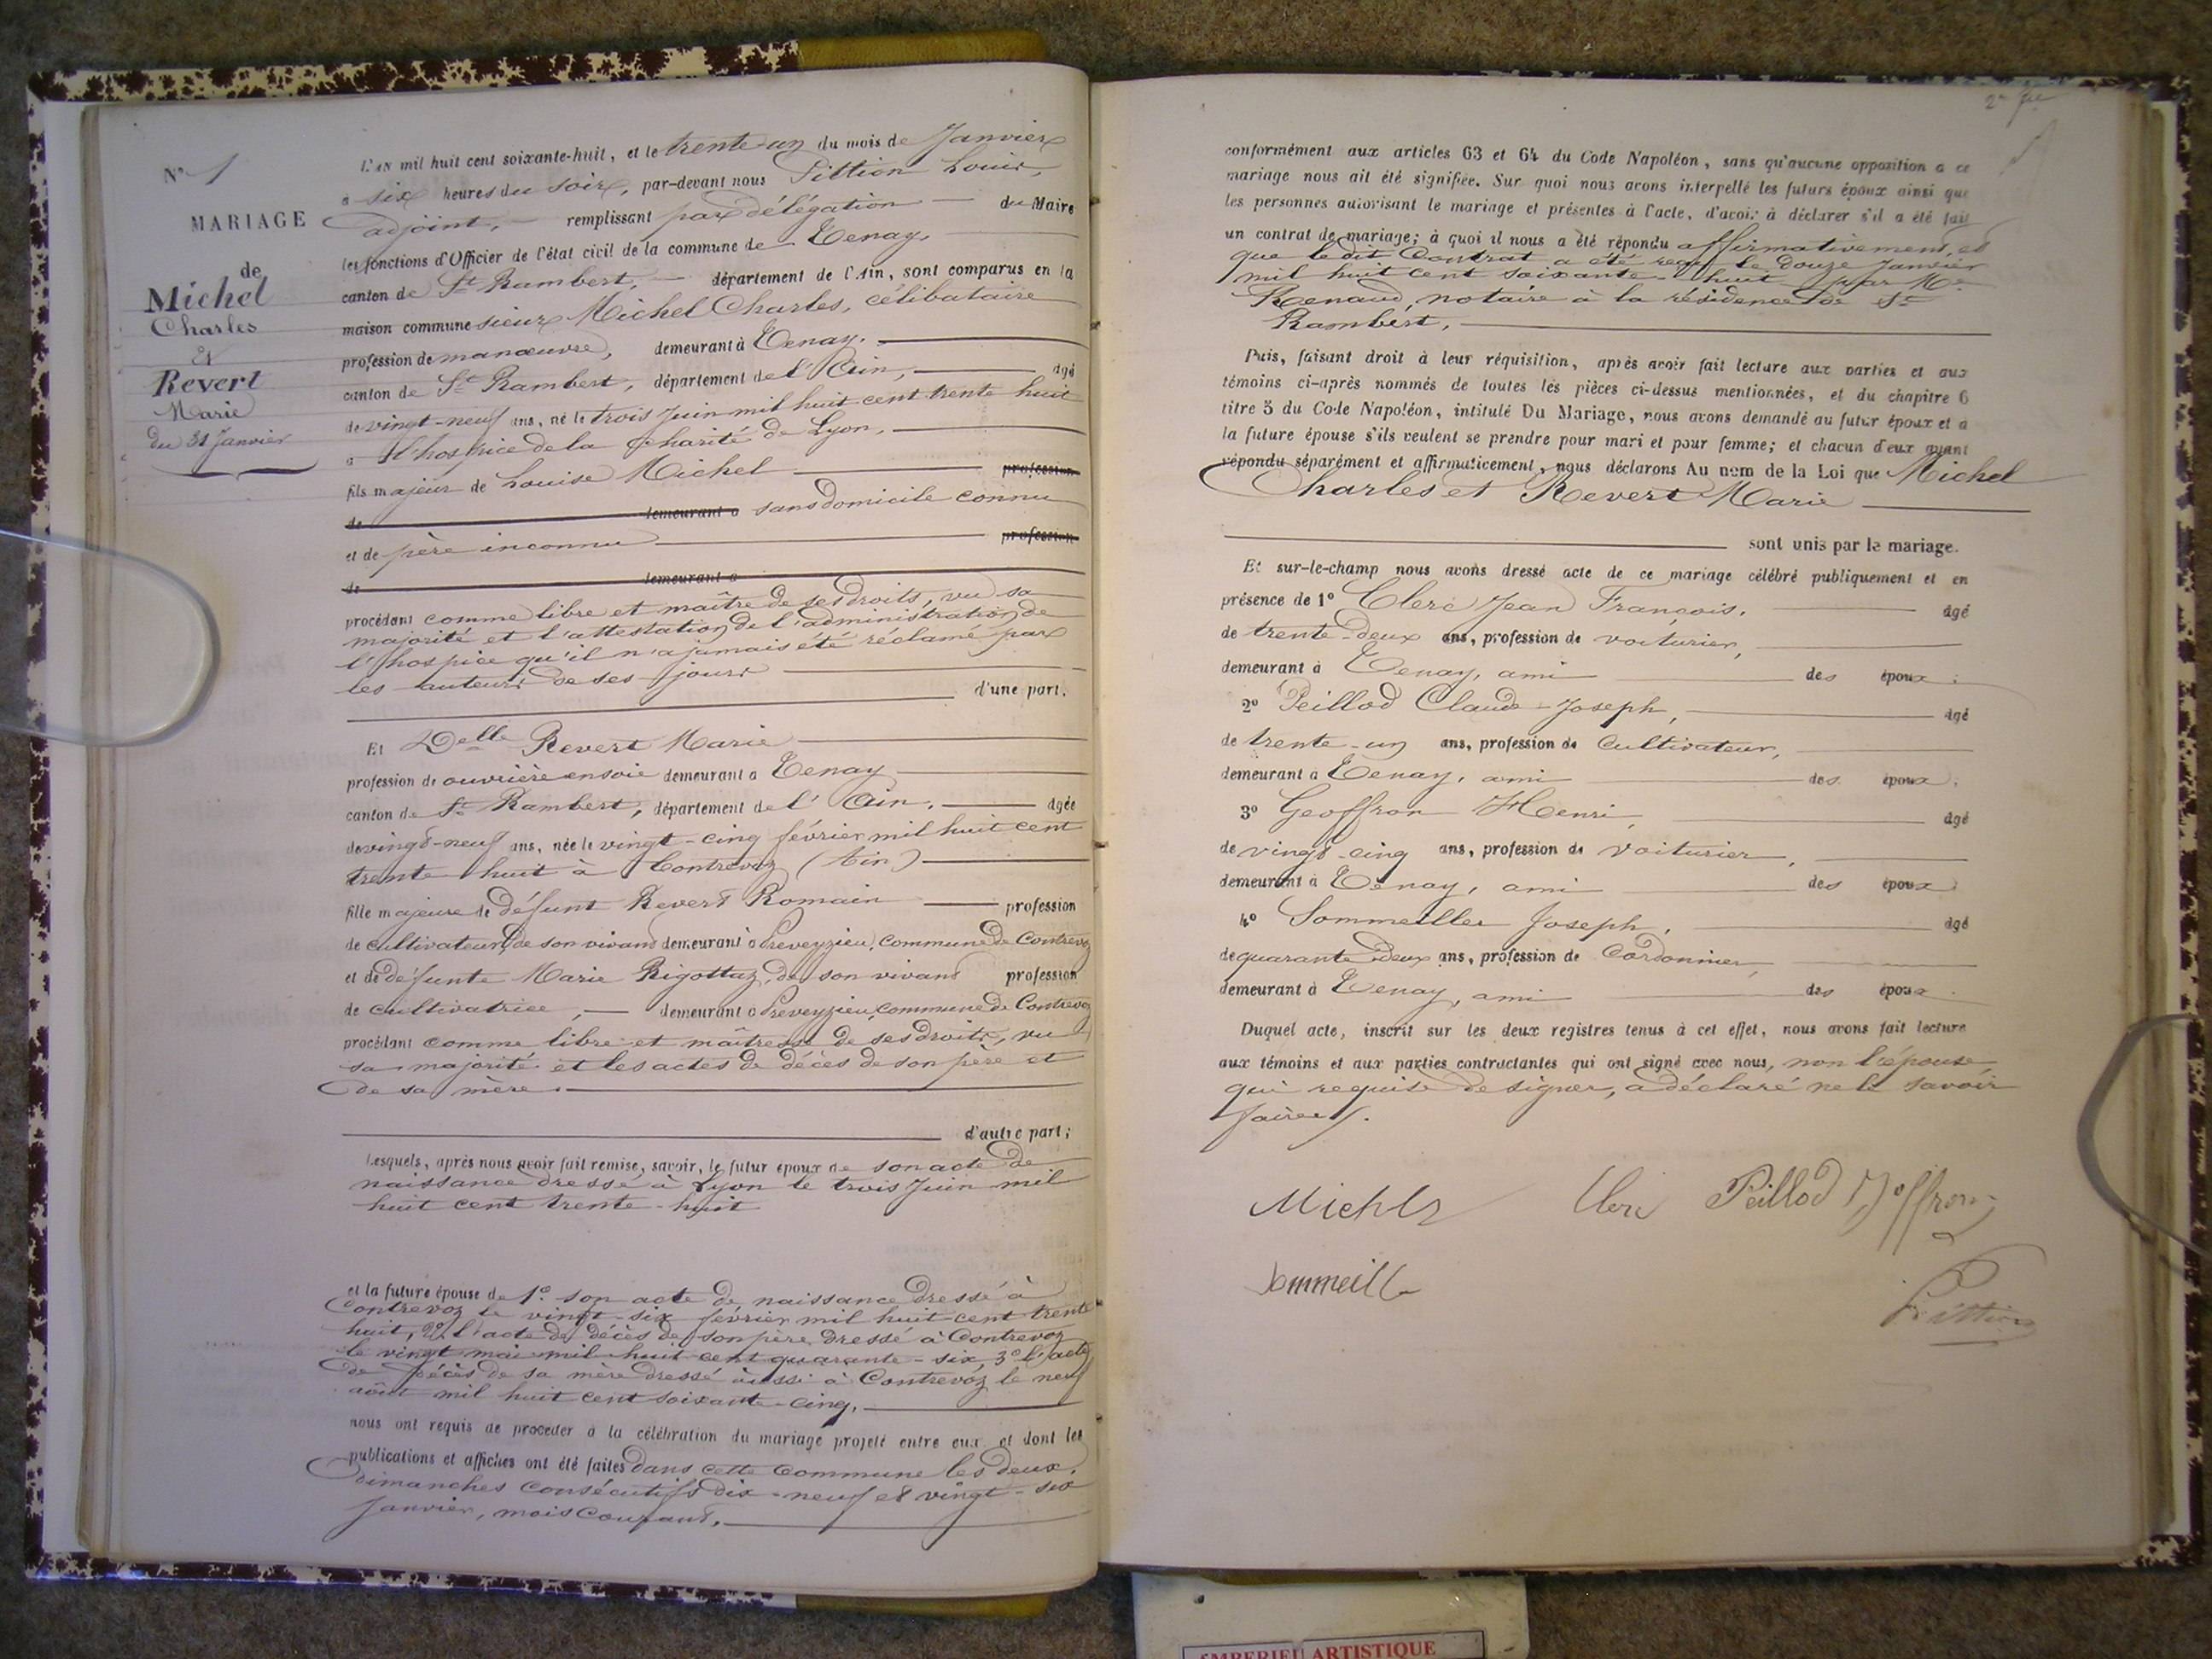 N° 1
MARIAGE
de
Michel
Charles
et
Revert
Marie
du 31 Janvier
L'AN mil huit cent soixante-huit, et le trente un du mois de Janvier
à six heures du soir, par-devant nous Pittion Louis,
adjoint, remplissant par délégation du Maire
les fonctions d'Officier de l'état civil de la commune de Tenay,
canton de St Rambert, département de l'Ain, sont comparus en la
maison commune sieur Michel Charles, célibataire
profession de manœuvre, demeurant à Tenay,
canton de St Rambert, département de l'Ain, âgé
de vingt-neuf ans, né le trois Juin mil huit cent trente huit
à l'hospice de la Charité de Lyon,
fils majeur de Louise Michel profession
de demeurant à sans domicile connu
et de père inconnu profession
de demeurant à
procédant comme libre et maître de ses droits, vu sa
majorité et l'attestation de l'administration de
l'hospice qu'il n'a jamais été réclamé par
les auteurs de ses jours
d'une part.
Et Delle Revert Marie
profession de ouvrière en soie demeurant à Tenay
canton de St Rambert, département de l'Ain, âgée
de vingt-neuf ans, née le vingt-cinq février mil huit cent
trente huit à Contrevoz (Ain)
fille majeure de défunt Revert Romain profession
de cultivateur, de son vivant demeurant à Preveyzieu, commune de Contrevoz
et de défunte Marie Rigottaz, de son vivant profession
de cultivatrice, demeurant à Preveyzieu, commune de Contrevoz
procédant comme libre et maîtresse de ses droits, vu
sa majorité et les actes de décès de son père et
de sa mère.
d'autre part;
Lesquels, après nous avoir fait remise, savoir, le futur époux de son acte de
naissance dressé à Lyon le trois Juin mil
huit cent trente-huit
et la future épouse de 1° son acte de naissance dressé à
Contrevoz le vingt-six février mil huit cent trente
huit, 2° l'acte de décès de son père dressé à Contrevoz
le vingt mai mil huit cent quarante-six, 3° l'acte
de décès de sa mère dressé aussi à Contrevoz le neuf
août mil huit cent soixante-cinq,
nous ont requis de procéder à la célébration du mariage projeté entre eux, et dont les
publications et affiches ont été faites dans cette commune les deux
dimanches consécutifs dix-neuf et vingt-six
Janvier, mois courant,
conformément aux articles 63 et 64 du Code Napoléon, sans qu'aucune opposition à ce
mariage nous ait été signifiée. Sur quoi nous avons interpellé les futurs époux ainsi que
les personnes autorisant le mariage et présentes à l'acte, d'avoir à déclarer s'il a été fait
un contrat de mariage; à quoi il nous a été répondu affirmativement, et
que le dit Contrat a été reçu le douze Janvier
mil huit cent soixante-huit par Me
Renaud, notaire à la résidence de St
Rambert,
Puis, faisant droit à leur réquisition, après avoir fait lecture aux parties et aux
témoins ci-après nommés de toutes les pièces ci-dessus mentionnées, et du chapitre 6
titre 5 du Code Napoléon, intitulé Du Mariage, nous avons demandé au futur époux et à
la future épouse s'ils veulent se prendre pour mari et pour femme; et chacun d'eux ayant
répondu séparément et affirmativement, nous déclarons Au nom de la Loi que Michel
Charles et Revert Marie
sont unis par le mariage.
Et sur-le-champ nous avons dressé acte de ce mariage célébré publiquement et en
présence de 1° Clerc Jean François, âgé
de trente-deux ans, profession de voiturier,
demeurant à Tenay, ami des époux.
2° Peillod Claude-Joseph, âgé
de trente-un ans, profession de Cultivateur,
demeurant à Tenay, ami des époux.
3° Geoffron Henri, âgé
de vingt-cinq ans, profession de Voiturier,
demeurant à Tenay, ami des époux
4° Sommeiller Joseph, âgé
de quarante deux ans, profession de Cordonnier,
demeurant à Tenay, ami des époux
Duquel acte, inscrit sur les deux registres tenus à cet effet, nous avons fait lecture
aux témoins et aux parties contractantes qui ont signé avec nous, non l'épouse
qui requise de signer, a déclaré ne le savoir
faire.
Clerc Peillod
Pittion
AMBERIEU ARTISTIQUE